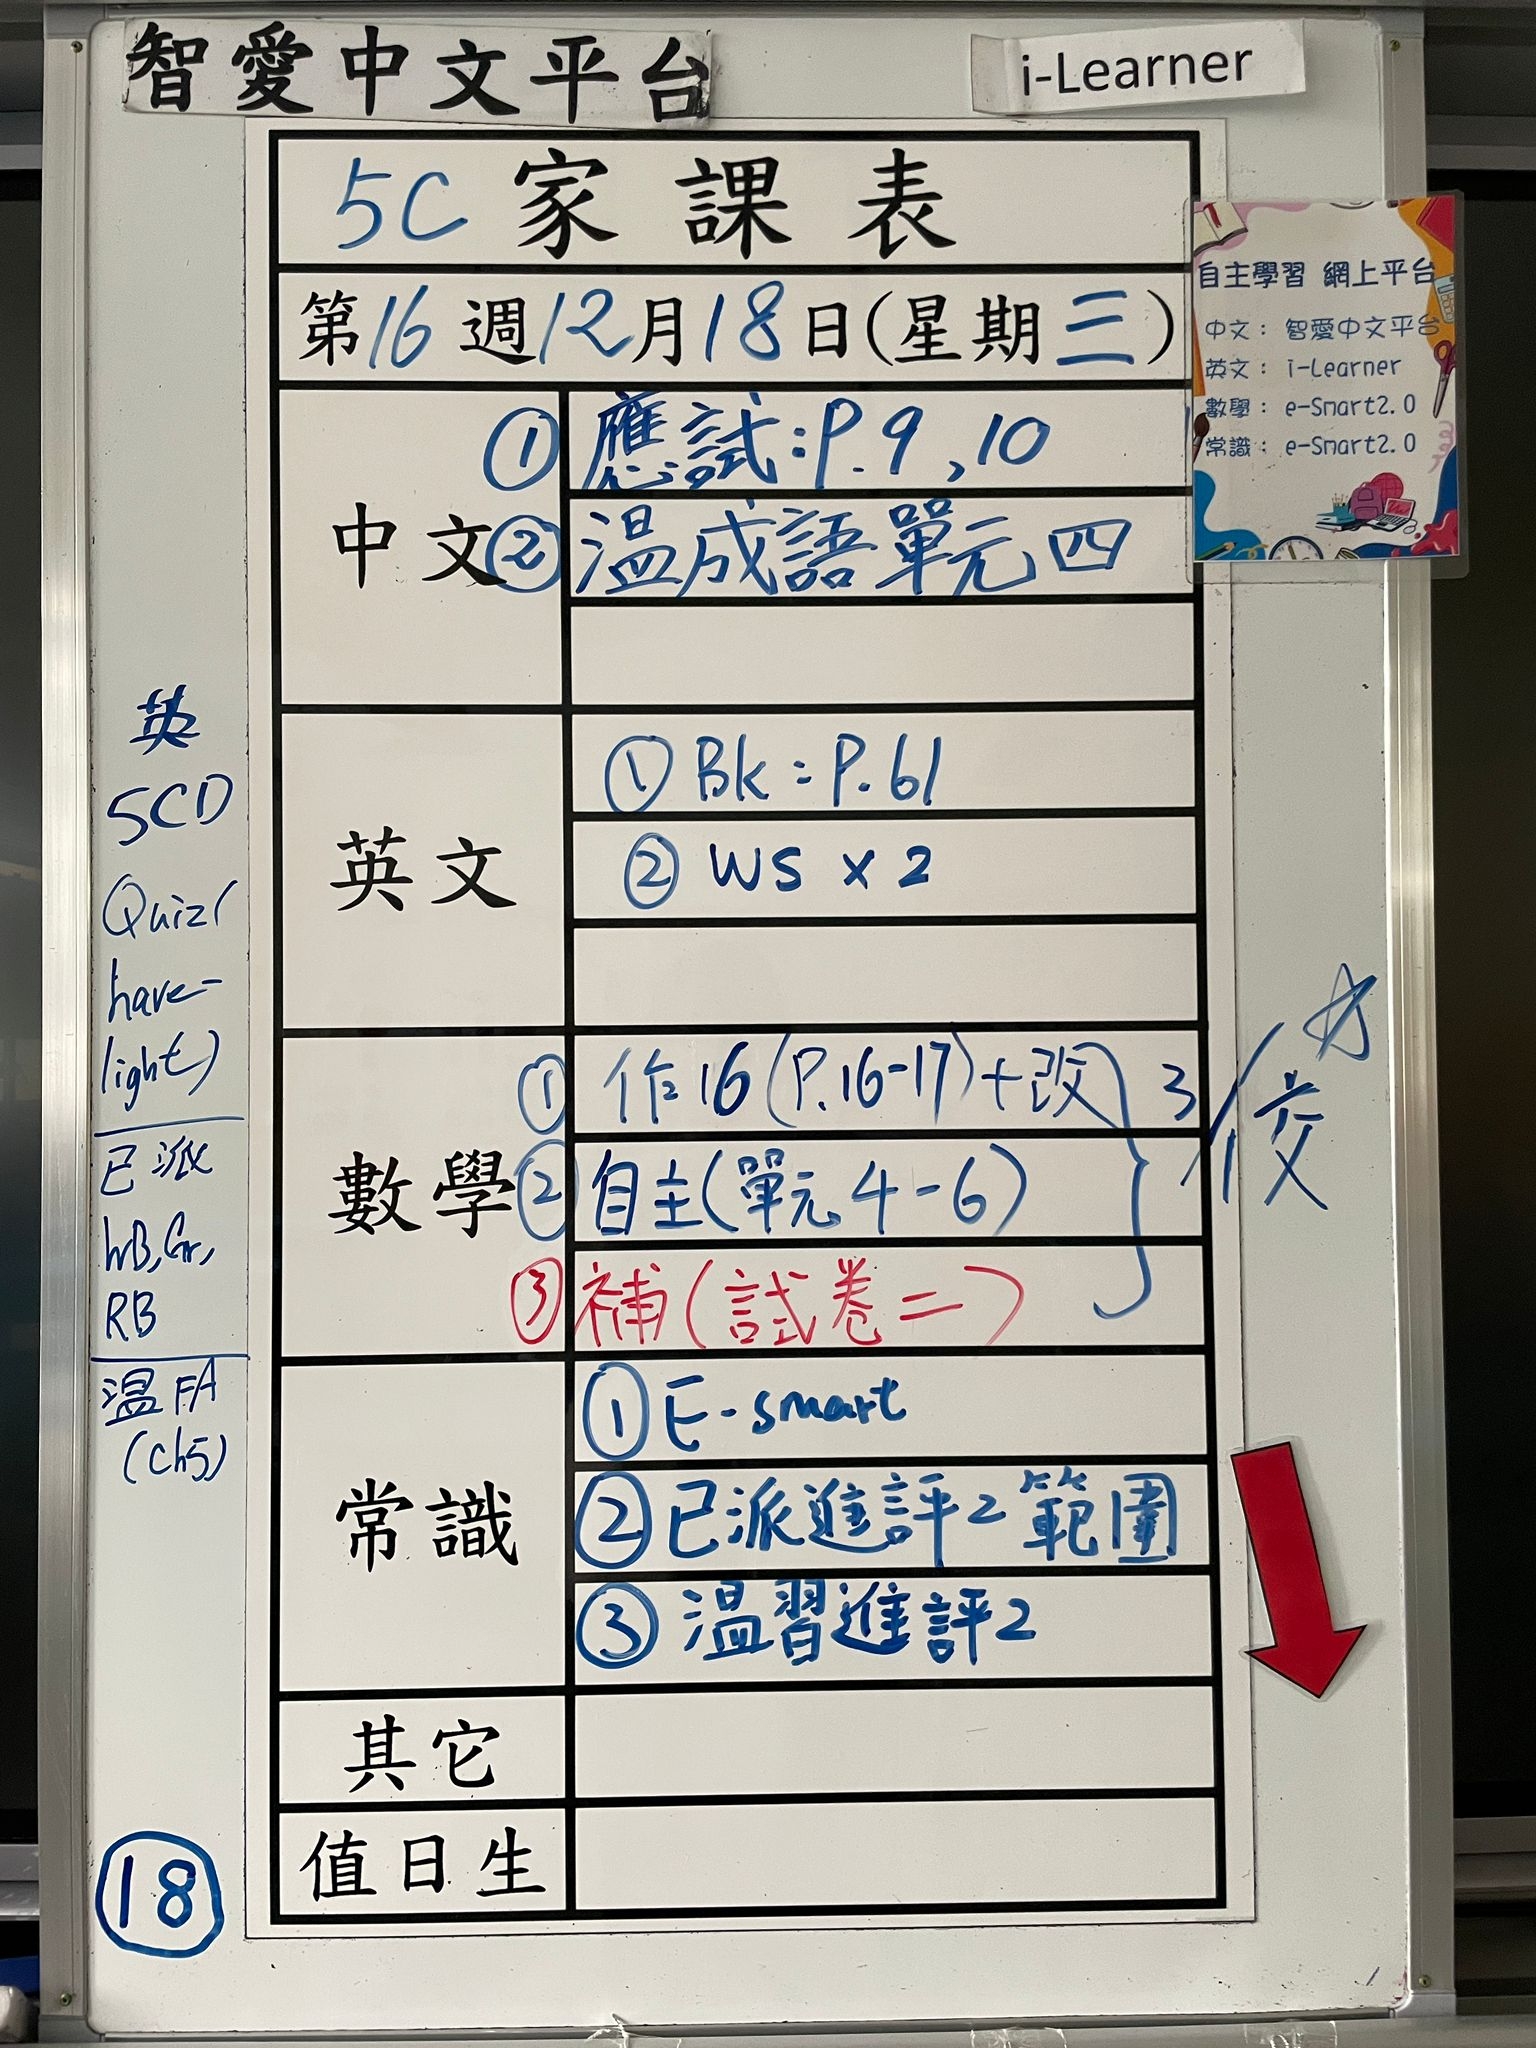 智愛中文平台
i-Learner
5C 家課表
第16週12月18日(星期三)
自主學習 網上平台
中文： 智愛中文平台
英文： i-Learner
數學： e-Smart2.0
常識： e-Smart2.0
中文
① 應試:P.9,10
② 溫成語單元四
英文
① Bk:P.61
② WS x 2
數學
① 作16(P.16-17)+改
② 自主(單元4-6)
③ 補(試卷二)
3/1交
常識
① E-smart
② 已派進評2範圍
③ 溫習進評2
其它
值日生
英
5CD
Quiz1
have-
light)
已派
WB,Gr,
RB
溫FA
(ch5)
18